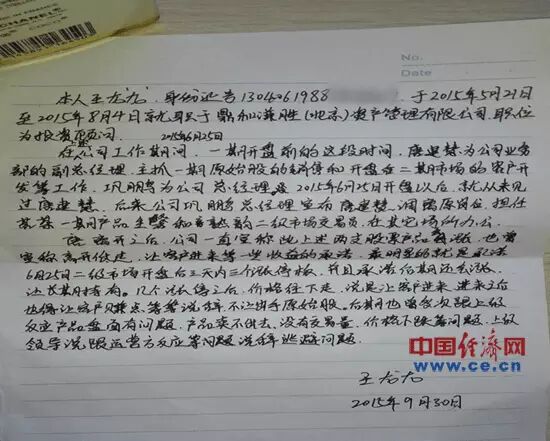 CHANEL
No.
Date
本人王龙龙,身份证号1304061988 于2015年5月21日
至2015年8月4日就职于鼎和谦胜(北京)资产管理有限公司,职位
为投资顾问。 2015年6月25日
在公司工作期间,一期开盘前的这段时间,唐建慧为公司业务
部的副总经理,主抓一期原始股的销售和开盘后二期市场的客户开
发等工作,巩鹏为公司总经理。2015年6月25日开盘以后,就从未见
过唐建慧,后来公司巩鹏总经理宣布唐建慧调离原岗位,担任
一期产品 二级市场交易员,在其它场所办公。
唐离开之后,公司一直宣称此上述两支股票产品 涨,也曾
宣称高开低走,让客户进来第一些收益的承诺,最明显的就是承诺
6月25日二级市场开盘后三天内三个涨停板,并且承诺后期还会涨
让长期持有。几个涨停之后,价格往下走,说是让客户进来,进来之后
也得让客户赚点等等说辞,不让出手原始股。后期也曾多次跟上级
反应产品盘面有问题,产品卖不出去,没有交易量,价格下跌等问题,上级
领导说跟运营方反应等问题说辞逃避问题。
王龙龙
2015年9月30日
中国经济网
www.ce.cn